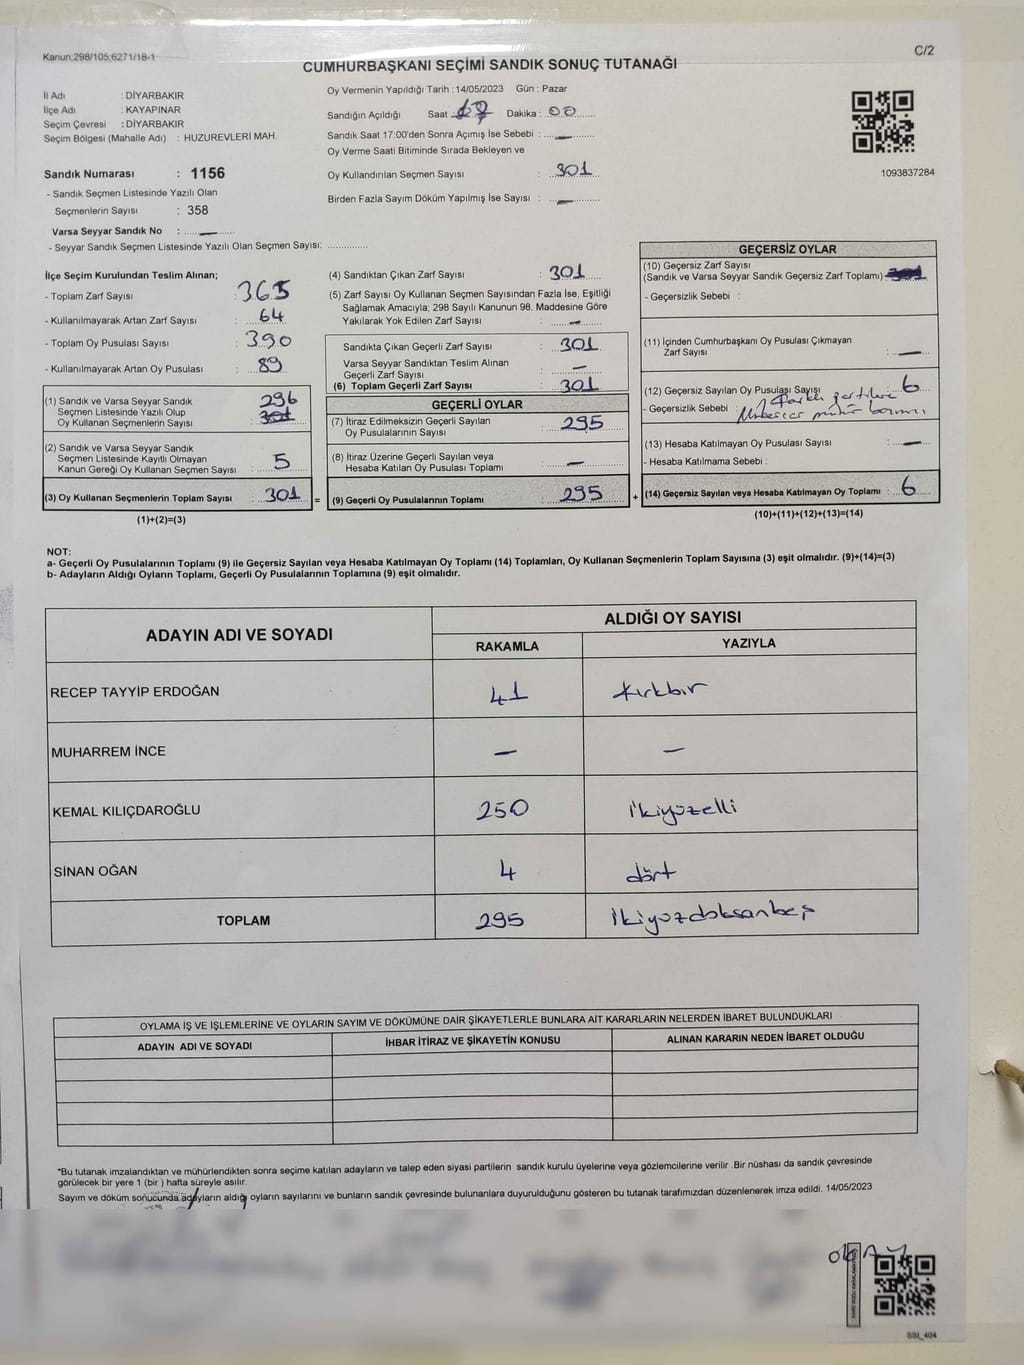 Kanun;298/105;6271/18-1
C/2
CUMHURBAŞKANI SEÇİMİ SANDIK SONUÇ TUTANAĞI
İl Adı : DİYARBAKIR
İlçe Adı : KAYAPINAR
Seçim Çevresi : DİYARBAKIR
Seçim Bölgesi (Mahalle Adı) : HUZUREVLERİ MAH.
Sandık Numarası : 1156
- Sandık Seçmen Listesinde Yazılı Olan
Seçmenlerin Sayısı : 358
Varsa Seyyar Sandık No : —
- Seyyar Sandık Seçmen Listesinde Yazılı Olan Seçmen Sayısı: ..............
Oy Vermenin Yapıldığı Tarih :14/05/2023 Gün : Pazar
Sandığın Açıldığı Saat 17 Dakika : 00
Sandık Saat 17:00'den Sonra Açımış İse Sebebi : —
Oy Verme Saati Bitiminde Sırada Bekleyen ve
Oy Kullandırılan Seçmen Sayısı : 301
Birden Fazla Sayım Döküm Yapılmış İse Sayısı : —
1093837284
İlçe Seçim Kurulundan Teslim Alınan;
- Toplam Zarf Sayısı : 365
- Kullanılmayarak Artan Zarf Sayısı : 64
- Toplam Oy Pusulası Sayısı : 390
- Kullanılmayarak Artan Oy Pusulası : 89
(1) Sandık ve Varsa Seyyar Sandık 296
Seçmen Listesinde Yazılı Olup
Oy Kullanan Seçmenlerin Sayısı : 301
(2) Sandık ve Varsa Seyyar Sandık
Seçmen Listesinde Kayıtlı Olmayan
Kanun Gereği Oy Kullanan Seçmen Sayısı : 5
(3) Oy Kullanan Seçmenlerin Toplam Sayısı : 301 =
(1)+(2)=(3)
(4) Sandıktan Çıkan Zarf Sayısı : 301
(5) Zarf Sayısı Oy Kullanan Seçmen Sayısından Fazla İse, Eşitliği
Sağlamak Amacıyla; 298 Sayılı Kanunun 98. Maddesine Göre
Yakılarak Yok Edilen Zarf Sayısı : —
Sandıkta Çıkan Geçerli Zarf Sayısı : 301
Varsa Seyyar Sandıktan Teslim Alınan
Geçerli Zarf Sayısı : —
(6) Toplam Geçerli Zarf Sayısı : 301
GEÇERLİ OYLAR
(7) İtiraz Edilmeksizin Geçerli Sayılan
Oy Pusulalarının Sayısı : 295
(8) İtiraz Üzerine Geçerli Sayılan veya
Hesaba Katılan Oy Pusulası Toplamı : —
(9) Geçerli Oy Pusulalarının Toplamı : 295 +
GEÇERSİZ OYLAR
(10) Geçersiz Zarf Sayısı
(Sandık ve Varsa Seyyar Sandık Geçersiz Zarf Toplamı) 301
- Geçersizlik Sebebi :
(11) İçinden Cumhurbaşkanı Oy Pusulası Çıkmayan
Zarf Sayısı : —
(12) Geçersiz Sayılan Oy Pusulası Sayısı : 6
- Geçersizlik Sebebi : mühür
(13) Hesaba Katılmayan Oy Pusulası Sayısı : —
- Hesaba Katılmama Sebebi :
(14) Geçersiz Sayılan veya Hesaba Katılmayan Oy Toplamı : 6
(10)+(11)+(12)+(13)=(14)
NOT:
a- Geçerli Oy Pusulalarının Toplamı (9) ile Geçersiz Sayılan veya Hesaba Katılmayan Oy Toplamı (14) Toplamları, Oy Kullanan Seçmenlerin Toplam Sayısına (3) eşit olmalıdır. (9)+(14)=(3)
b- Adayların Aldığı Oyların Toplamı, Geçerli Oy Pusulalarının Toplamına (9) eşit olmalıdır.
ADAYIN ADI VE SOYADI
ALDIĞI OY SAYISI
RAKAMLA YAZIYLA
RECEP TAYYİP ERDOĞAN 41 Kırkbir
MUHARREM İNCE — —
KEMAL KILIÇDAROĞLU 250 İkiyüzelli
SİNAN OĞAN 4 dört
TOPLAM 295 İkiyüzdoksanbeş
OYLAMA İŞ VE İŞLEMLERİNE VE OYLARIN SAYIM VE DÖKÜMÜNE DAİR ŞİKAYETLERLE BUNLARA AİT KARARLARIN NELERDEN İBARET BULUNDUKLARI
ADAYIN ADI VE SOYADI İHBAR İTİRAZ VE ŞİKAYETİN KONUSU ALINAN KARARIN NEDEN İBARET OLDUĞU
*Bu tutanak imzalandıktan ve mühürlendikten sonra seçime katılan adayların ve talep eden siyasi partilerin sandık kurulu üyelerine veya gözlemcilerine verilir .Bir nüshası da sandık çevresinde
görülecek bir yere 1 (bir ) hafta süreyle asılır.
Sayım ve döküm sonucunda adayların aldığı oyların sayılarını ve bunların sandık çevresinde bulunanlara duyurulduğunu gösteren bu tutanak tarafımızdan düzenlenerek imza edildi. 14/05/2023
BSI_404